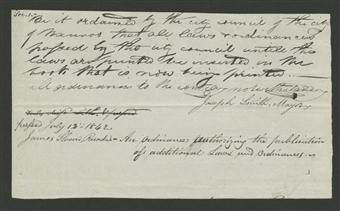 Sec. 1st
Be it ordained by the city council of the city
of Nauvoo, that all laws & ordinances
passed by the city council untill the
laws are printed be inserted in the
book that is now being printed —
all ordinance to the contrary notwithstanding
Joseph Smith, Mayor
passed July 12th 1842.
James Sloan, Recorder — An Ordinance authorizing the publication
of additional Laws and Ordinances.